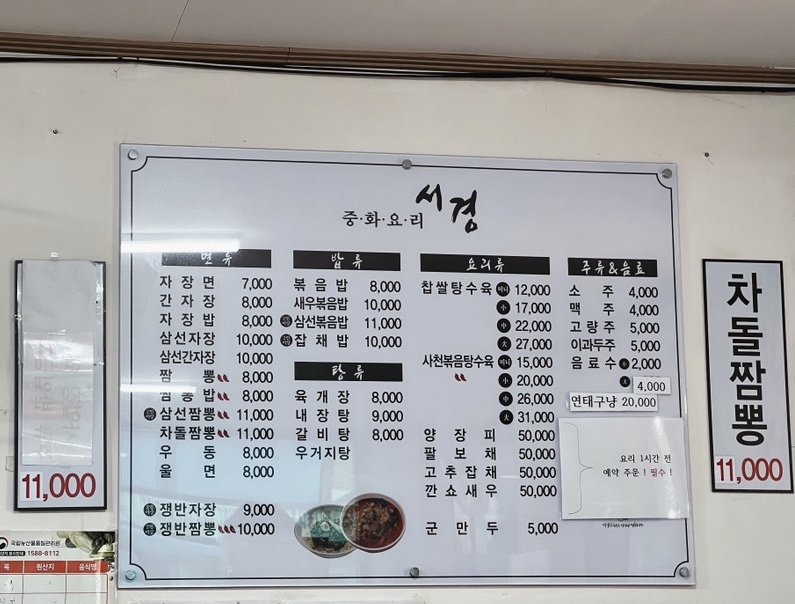 중·화·요·리 서경
면류
자장면 7,000
간자장 8,000
자장밥 8,000
삼선자장 10,000
삼선간자장 10,000
짬뽕 8,000
짬뽕밥 8,000
삼선짬뽕 11,000
차돌짬뽕 11,000
우동 8,000
울면 8,000
쟁반자장 9,000
쟁반짬뽕 10,000
밥류
볶음밥 8,000
새우볶음밥 10,000
삼선볶음밥 11,000
잡채밥 10,000
탕류
육개장 8,000
내장탕 9,000
갈비탕 8,000
우거지탕
요리류
찹쌀탕수육 미니 12,000
小 17,000
中 22,000
大 27,000
사천볶음탕수육 미니 15,000
小 20,000
中 26,000
大 31,000
양장피 50,000
팔보채 50,000
고추잡채 50,000
깐쇼새우 50,000
군만두 5,000
주류&음료
소주 4,000
맥주 4,000
고량주 5,000
이과두주 5,000
음료수 小 2,000
大 4,000
연태구냥 20,000
요리 1시간 전
예약 주문! 필수!
차돌짬뽕
11,000
11,000
국립농산물품질관리원
1588-8112
목 원산지 음식명